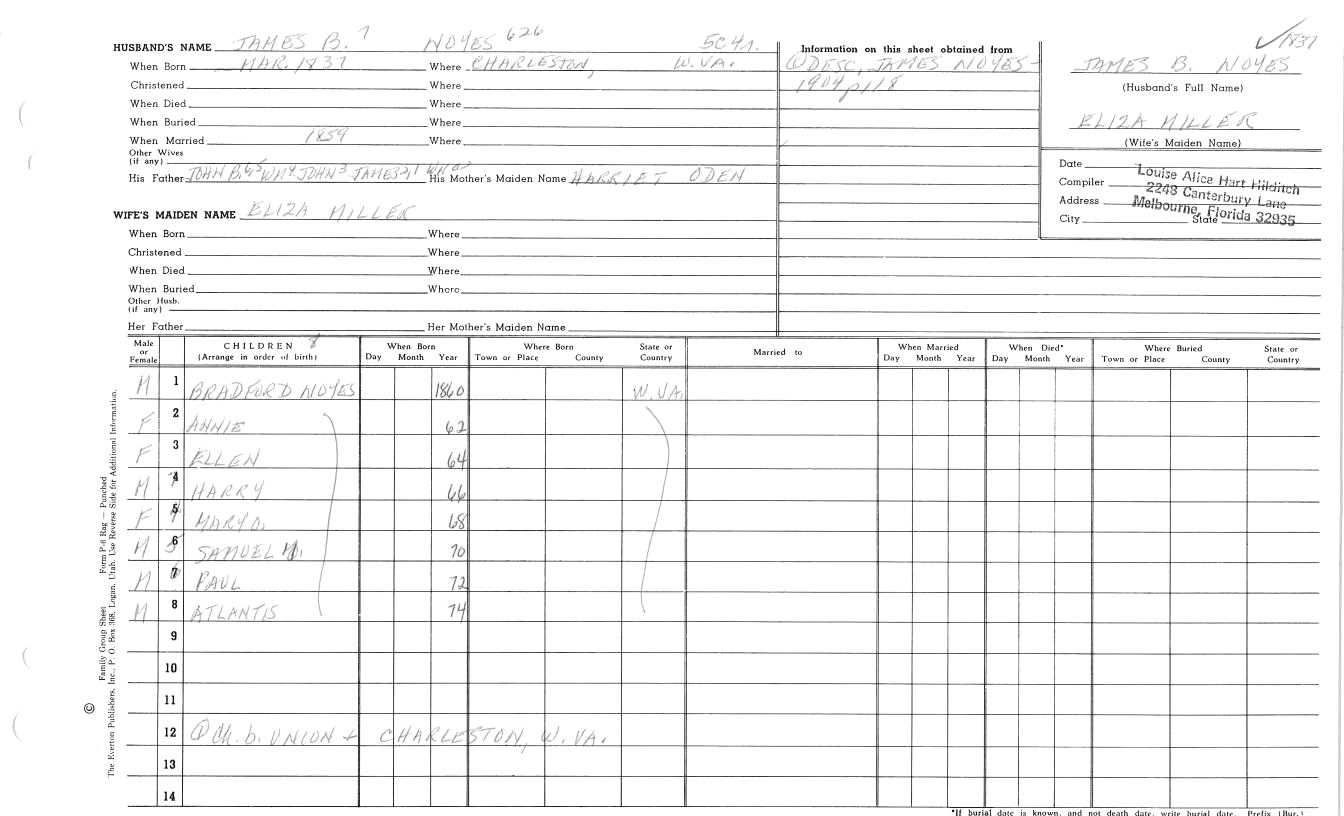 ✓1837
HUSBAND'S NAME JAMES B. 7 NOYES 626 5C4n.
When Born MAR. 1837 Where CHARLESTON, W.VA.
Christened Where
When Died Where
When Buried Where
When Married 1859 Where
Other Wives
(if any)
His Father JOHN B. His Mother's Maiden Name HARRIET ODEN
WIFE'S MAIDEN NAME ELIZA MILLER
When Born Where
Christened Where
When Died Where
When Buried Where
Other Husb.
(if any)
Her Father Her Mother's Maiden Name
Information on this sheet obtained from
DESC. JAMES NOYES -
1904 p118
JAMES B. NOYES
(Husband's Full Name)
ELIZA MILLER
(Wife's Maiden Name)
Date
Compiler Louise Alice Hart Hilditch
Address 2248 Canterbury Lane
City State Melbourne, Florida 32935
Male or Female CHILDREN 8 (Arrange in order of birth) When Born Day Month Year Where Born Town or Place County State or Country Married to When Married Day Month Year When Died* Day Month Year Where Buried Town or Place County State or Country
M 1 BRADFORD NOYES 1860 W.VA.
F 2 ANNIE 62
F 3 ELLEN 64
M 4 HARRY 66
F 5 MARY O. 68
M 6 SAMUEL 70
M 7 PAUL 72
M 8 ATLANTIS 74
9
10
11
12 Ch. b. UNION + CHARLESTON, W. VA.
13
14
*If burial date is known, and not death date, write burial date. Prefix (Bur.)
© Family Group Sheet Form P-8 Rag — Punched
The Everton Publishers, Inc., P. O. Box 368, Logan, Utah. Use Reverse Side for Additional Information.